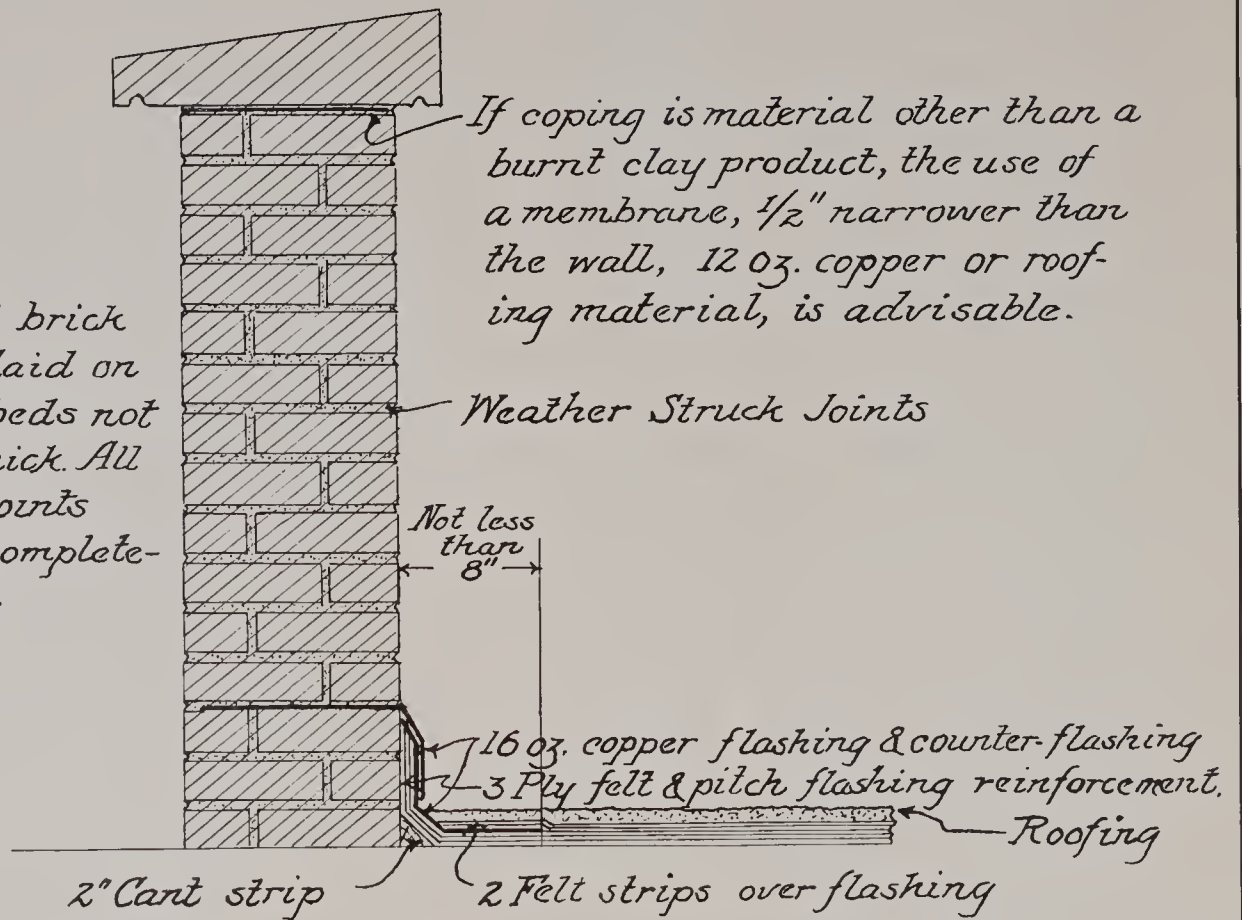 If coping is material other than a
burnt clay product, the use of
a membrane, 1/2" narrower than
the wall, 12 oz. copper or roof-
ing material, is advisable.
brick
laid on
beds not
All
complete-
Weather Struck Joints
Not less
than
8"
16 oz. copper flashing & counter-flashing
3 Ply felt & pitch flashing reinforcement.
Roofing
2" Cant strip
2 Felt strips over flashing